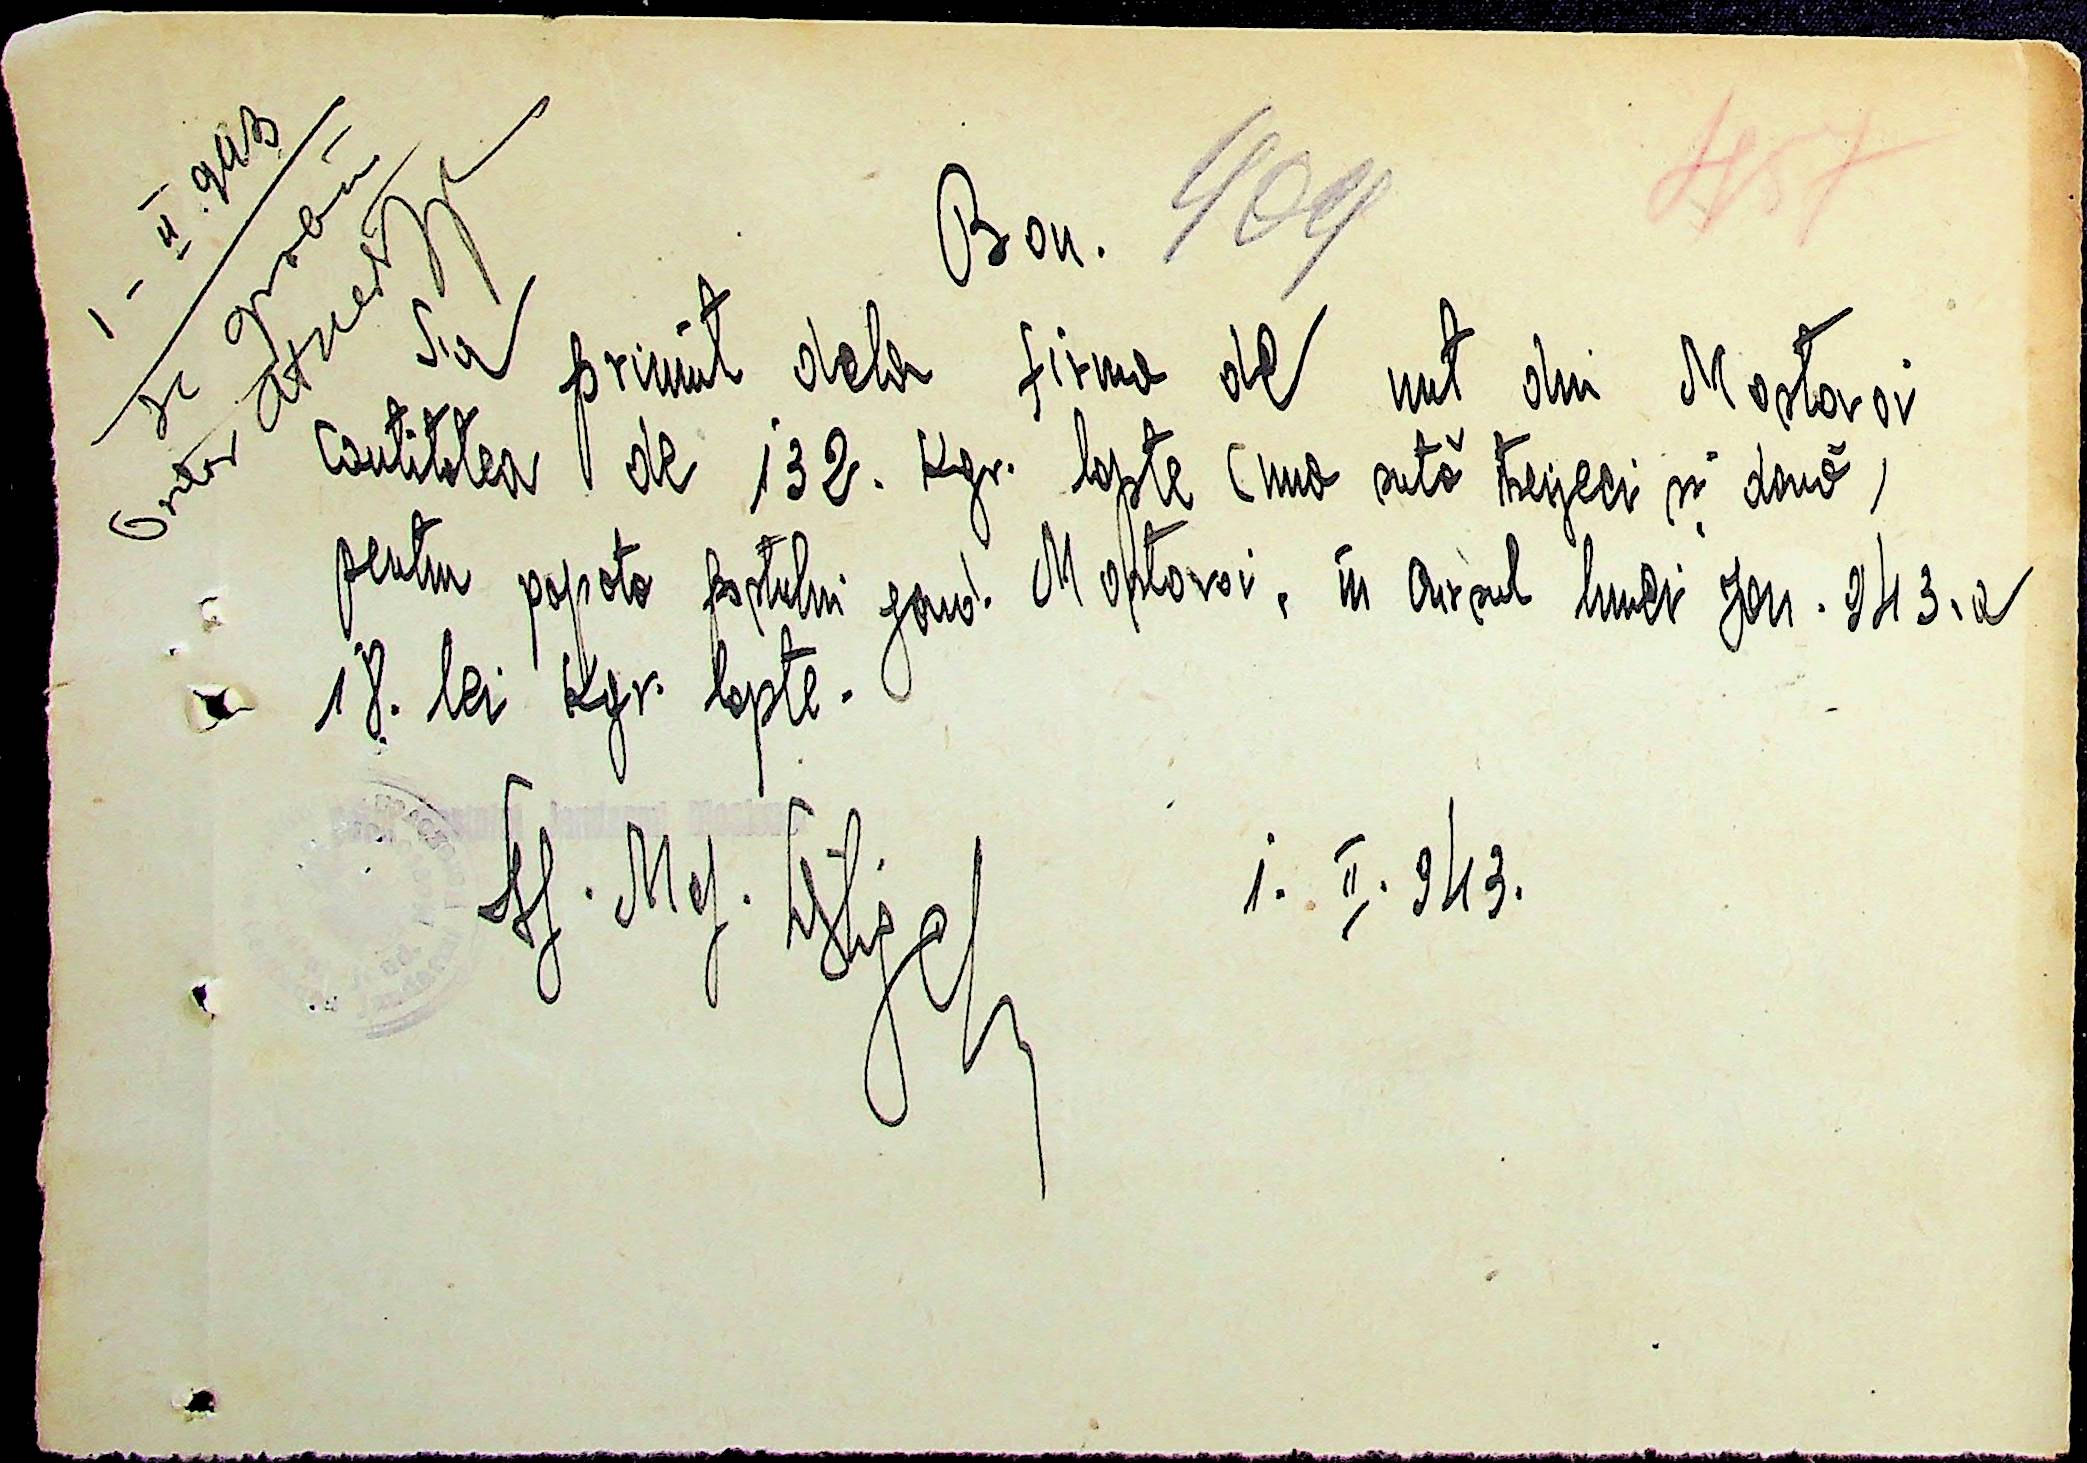 1 - II 943
se aprobă
Bon. 404
457
S'a primit dela firma de unt din Mostovoi
cantitatea de 132. Kgr. lapte (una sută treizeci și două)
pentru popota postului jand. Mostovoi, în cursul lunei Jan. 943. a
18. lei Kgr. lapte.
Plf. Maj.
1. II. 943.